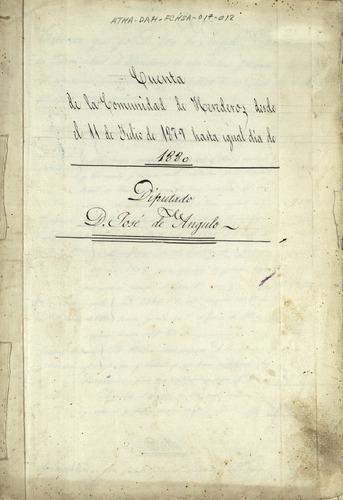 ATHA-DAH-FCNSA-017-012
Cuenta
de la Comunidad de Herederoz desde
el 11 de Julio de 1879 hasta igual dia de
1880
Diputado
D. José de Angulo